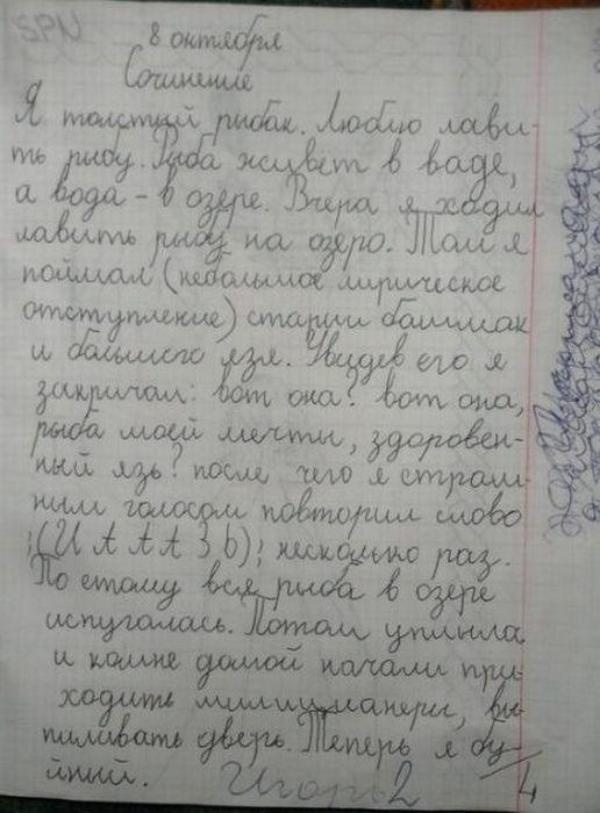 SPN
8 октября
Сочинение
Я толстый рыбак. Люблю лави-
ть рыбу. Рыба живёт в ваде,
а вода - в озере. Вчера я ходил
лавить рыбу на озеро. Там я
поймал (небольшое лирическое
отступление) старии башмак
и большого язя. Увидев его я
закричал: вот она? вот она,
рыба моей мечты, здоровен-
ный язь? после чего я страш-
ным голосом повторил слово
;(И А А А З Ь); несколько раз.
По етому вся рыба в озере
испугалась. Потом уплыла
и комне домой начали при-
ходить милиционеры, вы-
пиливать дверь. Теперь я бу-
йный. Игорь 2
4